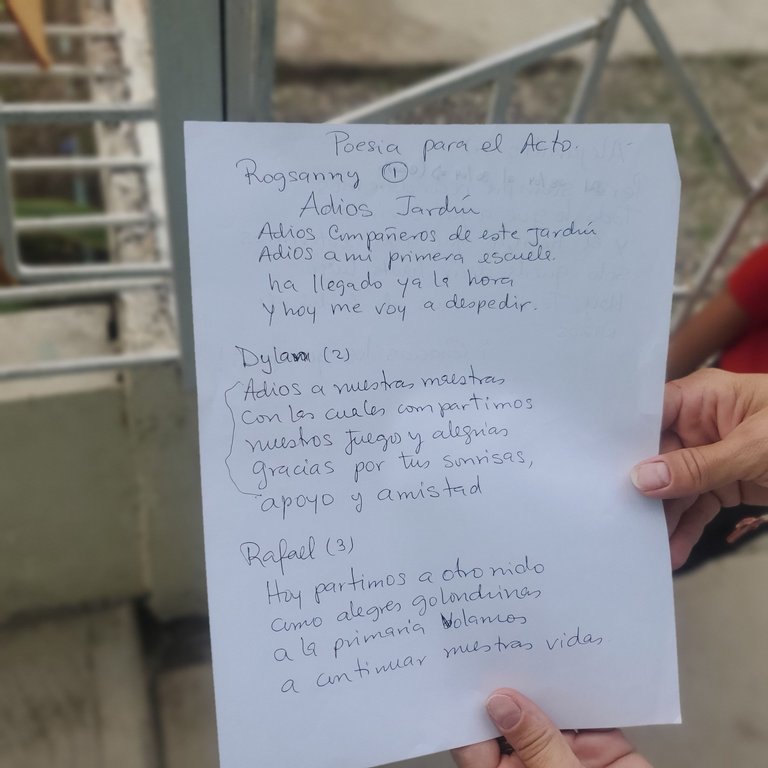 Poesia para el Acto.
Rogsanny ①
Adios Jardín
Adios Compañeros de este Jardín
Adios a mi primera escuela.
ha llegado ya la hora
y hoy me voy a despedir.
Dylan (2)
Adios a nuestras maestras
con las cuales compartimos
nuestros juego y alegrias
gracias por tus sonrisas,
apoyo y amistad
Rafael (3)
Hoy partimos a otro nido
como alegres golondrinas
a la primaria Volamos
a continuar nuestras vidas